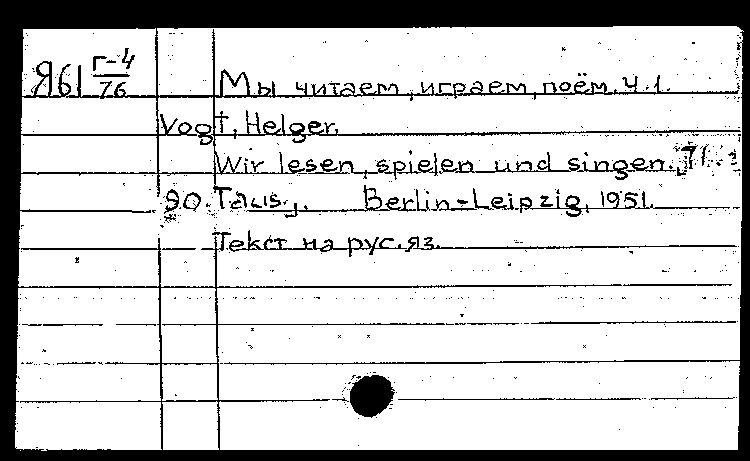 Я61 Г-4/76 Мы читаем, играем, поём. Ч.1.
Vogt, Helger.
Wir lesen, spielen und singen.
90. Berlin-Leipzig, 1951.
Текст на рус.яз.